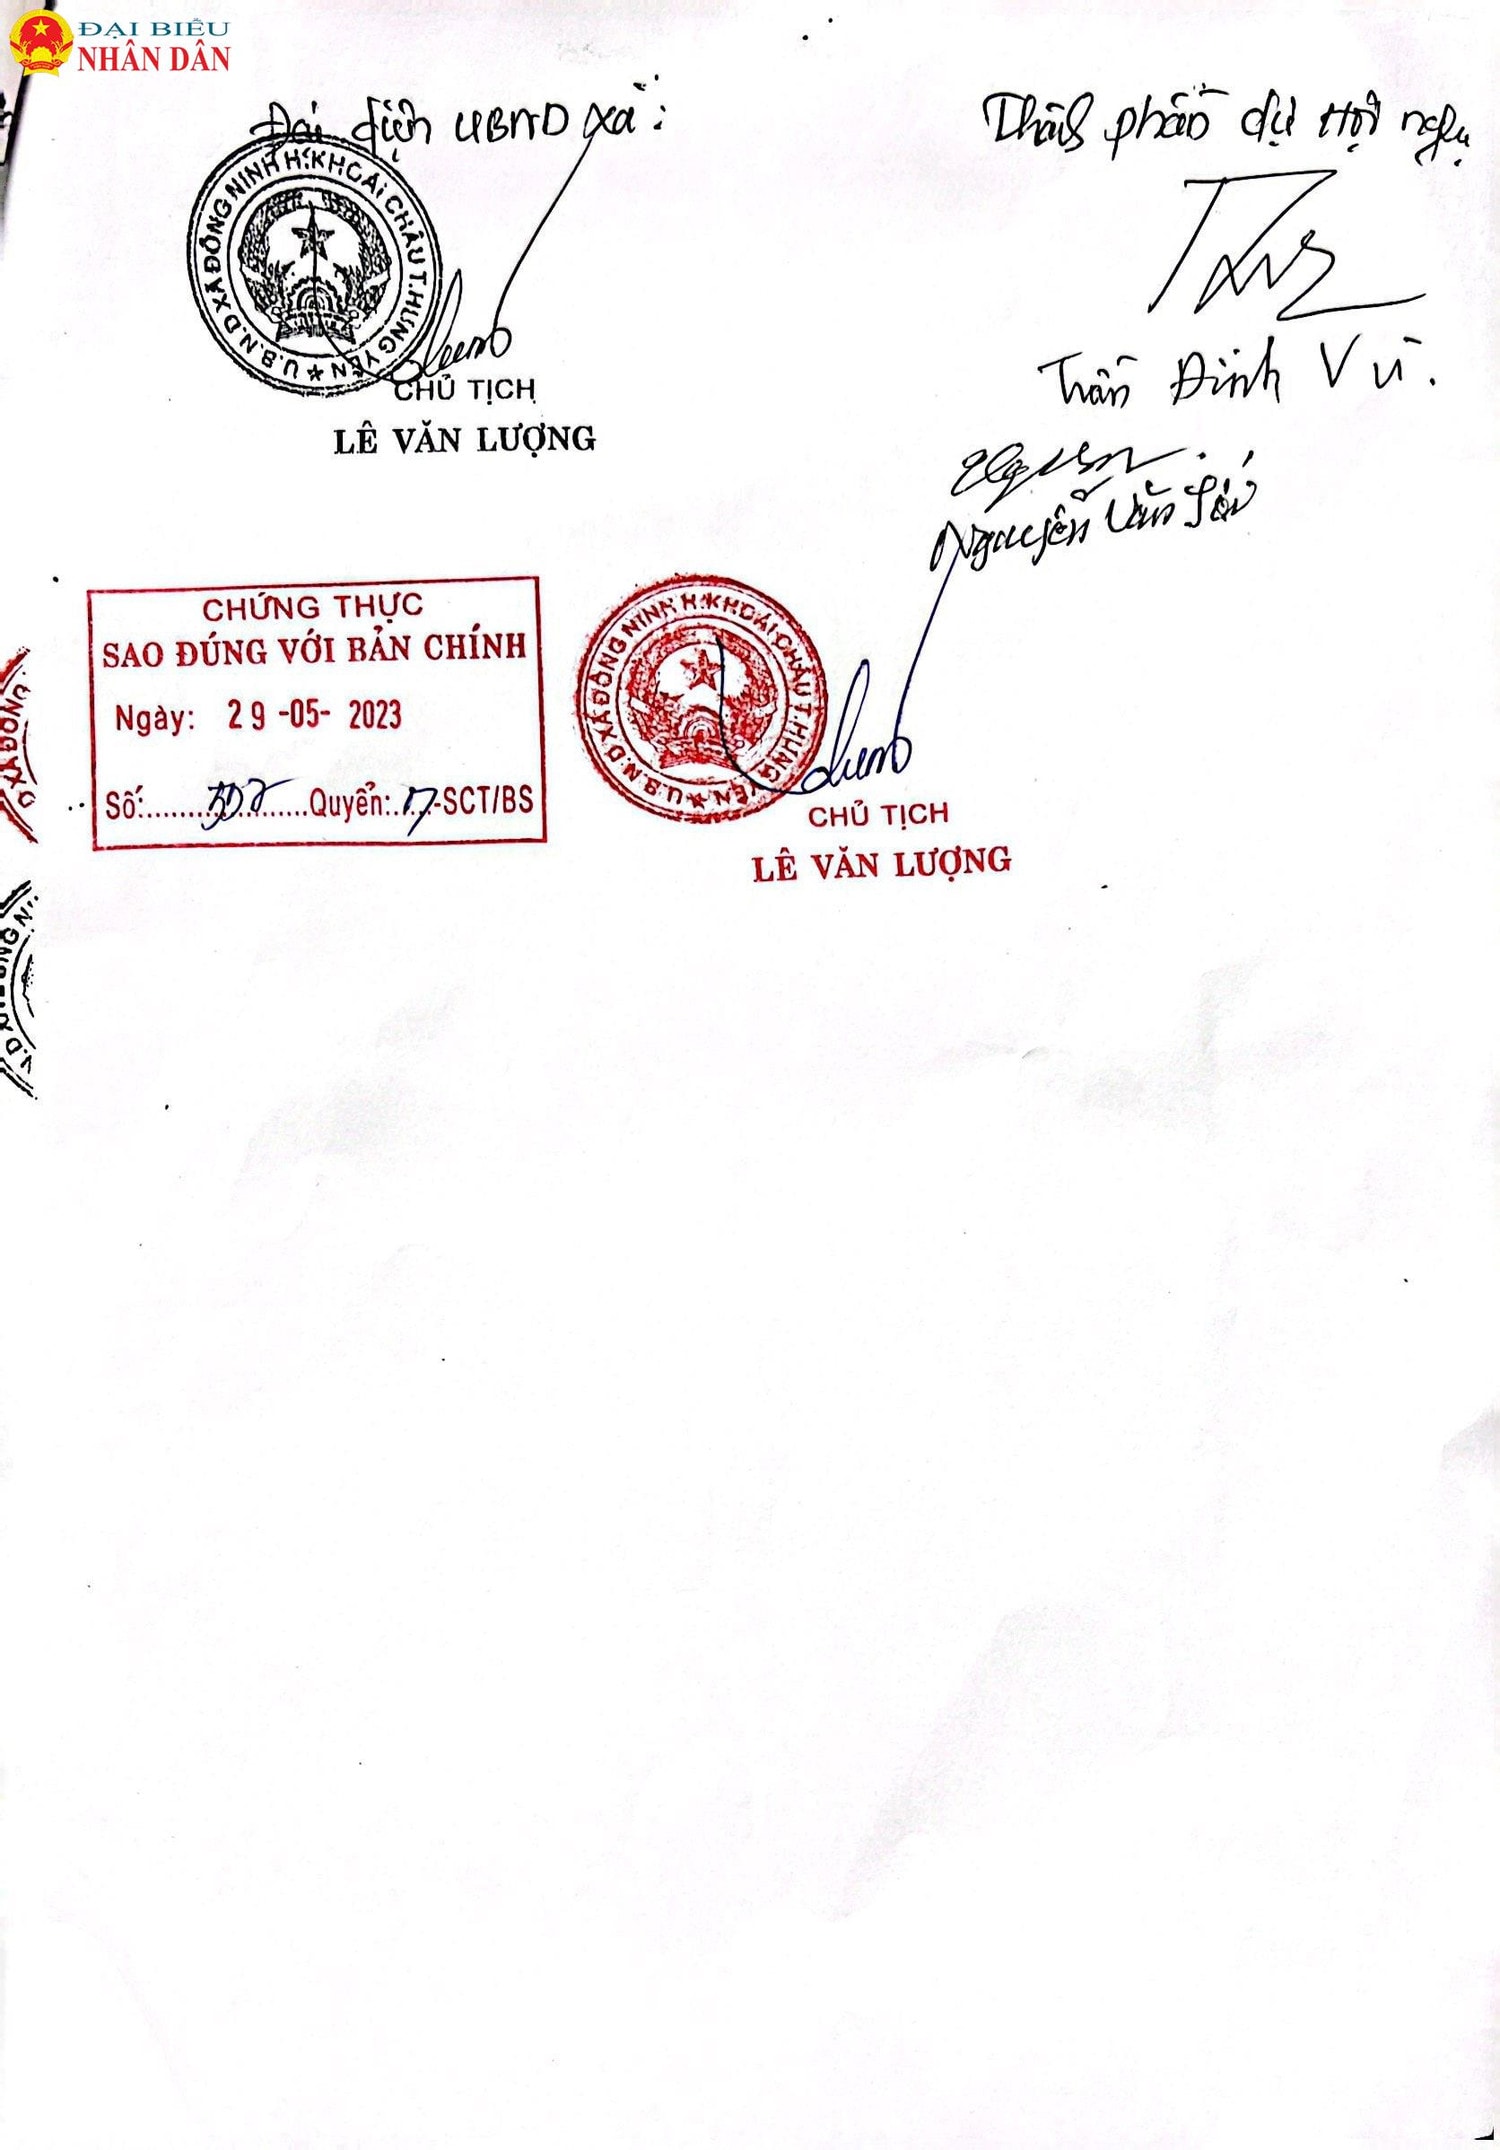 ĐẠI BIỂU
NHÂN DÂN
Đại diện UBND xã:
Thành phần dự Hội nghị
U.B.N.D XÃ ĐỒNG NINH H.KHOÁI CHÂU T.HƯNG YÊN
CHỦ TỊCH
LÊ VĂN LƯỢNG
Trần Đình Vũ.
Nguyễn Văn
CHỨNG THỰC
SAO ĐÚNG VỚI BẢN CHÍNH
Ngày: 29 -05- 2023
Số:..........Quyển:.....-SCT/BS
U.B.N.D XÃ ĐỒNG NINH H.KHOÁI CHÂU T.HƯNG YÊN
CHỦ TỊCH
LÊ VĂN LƯỢNG
XÃ ĐỒNG